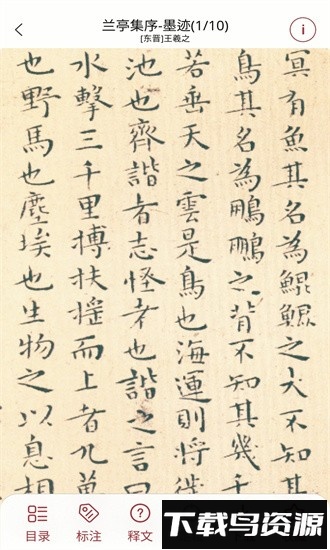 兰亭集序-墨迹(1/10)
[东晋]王羲之
冥有魚其名為鯤鯤之大不知其
鳥其名為鵬鵬之背不知其幾千
若垂天之雲是鳥也海運則將徙
池也齊諧者志怪者也諧之言曰
水擊三千里搏扶搖而上者九萬
也野馬也塵埃也生物之以息相
目录 标注 释文
下载鸟资源